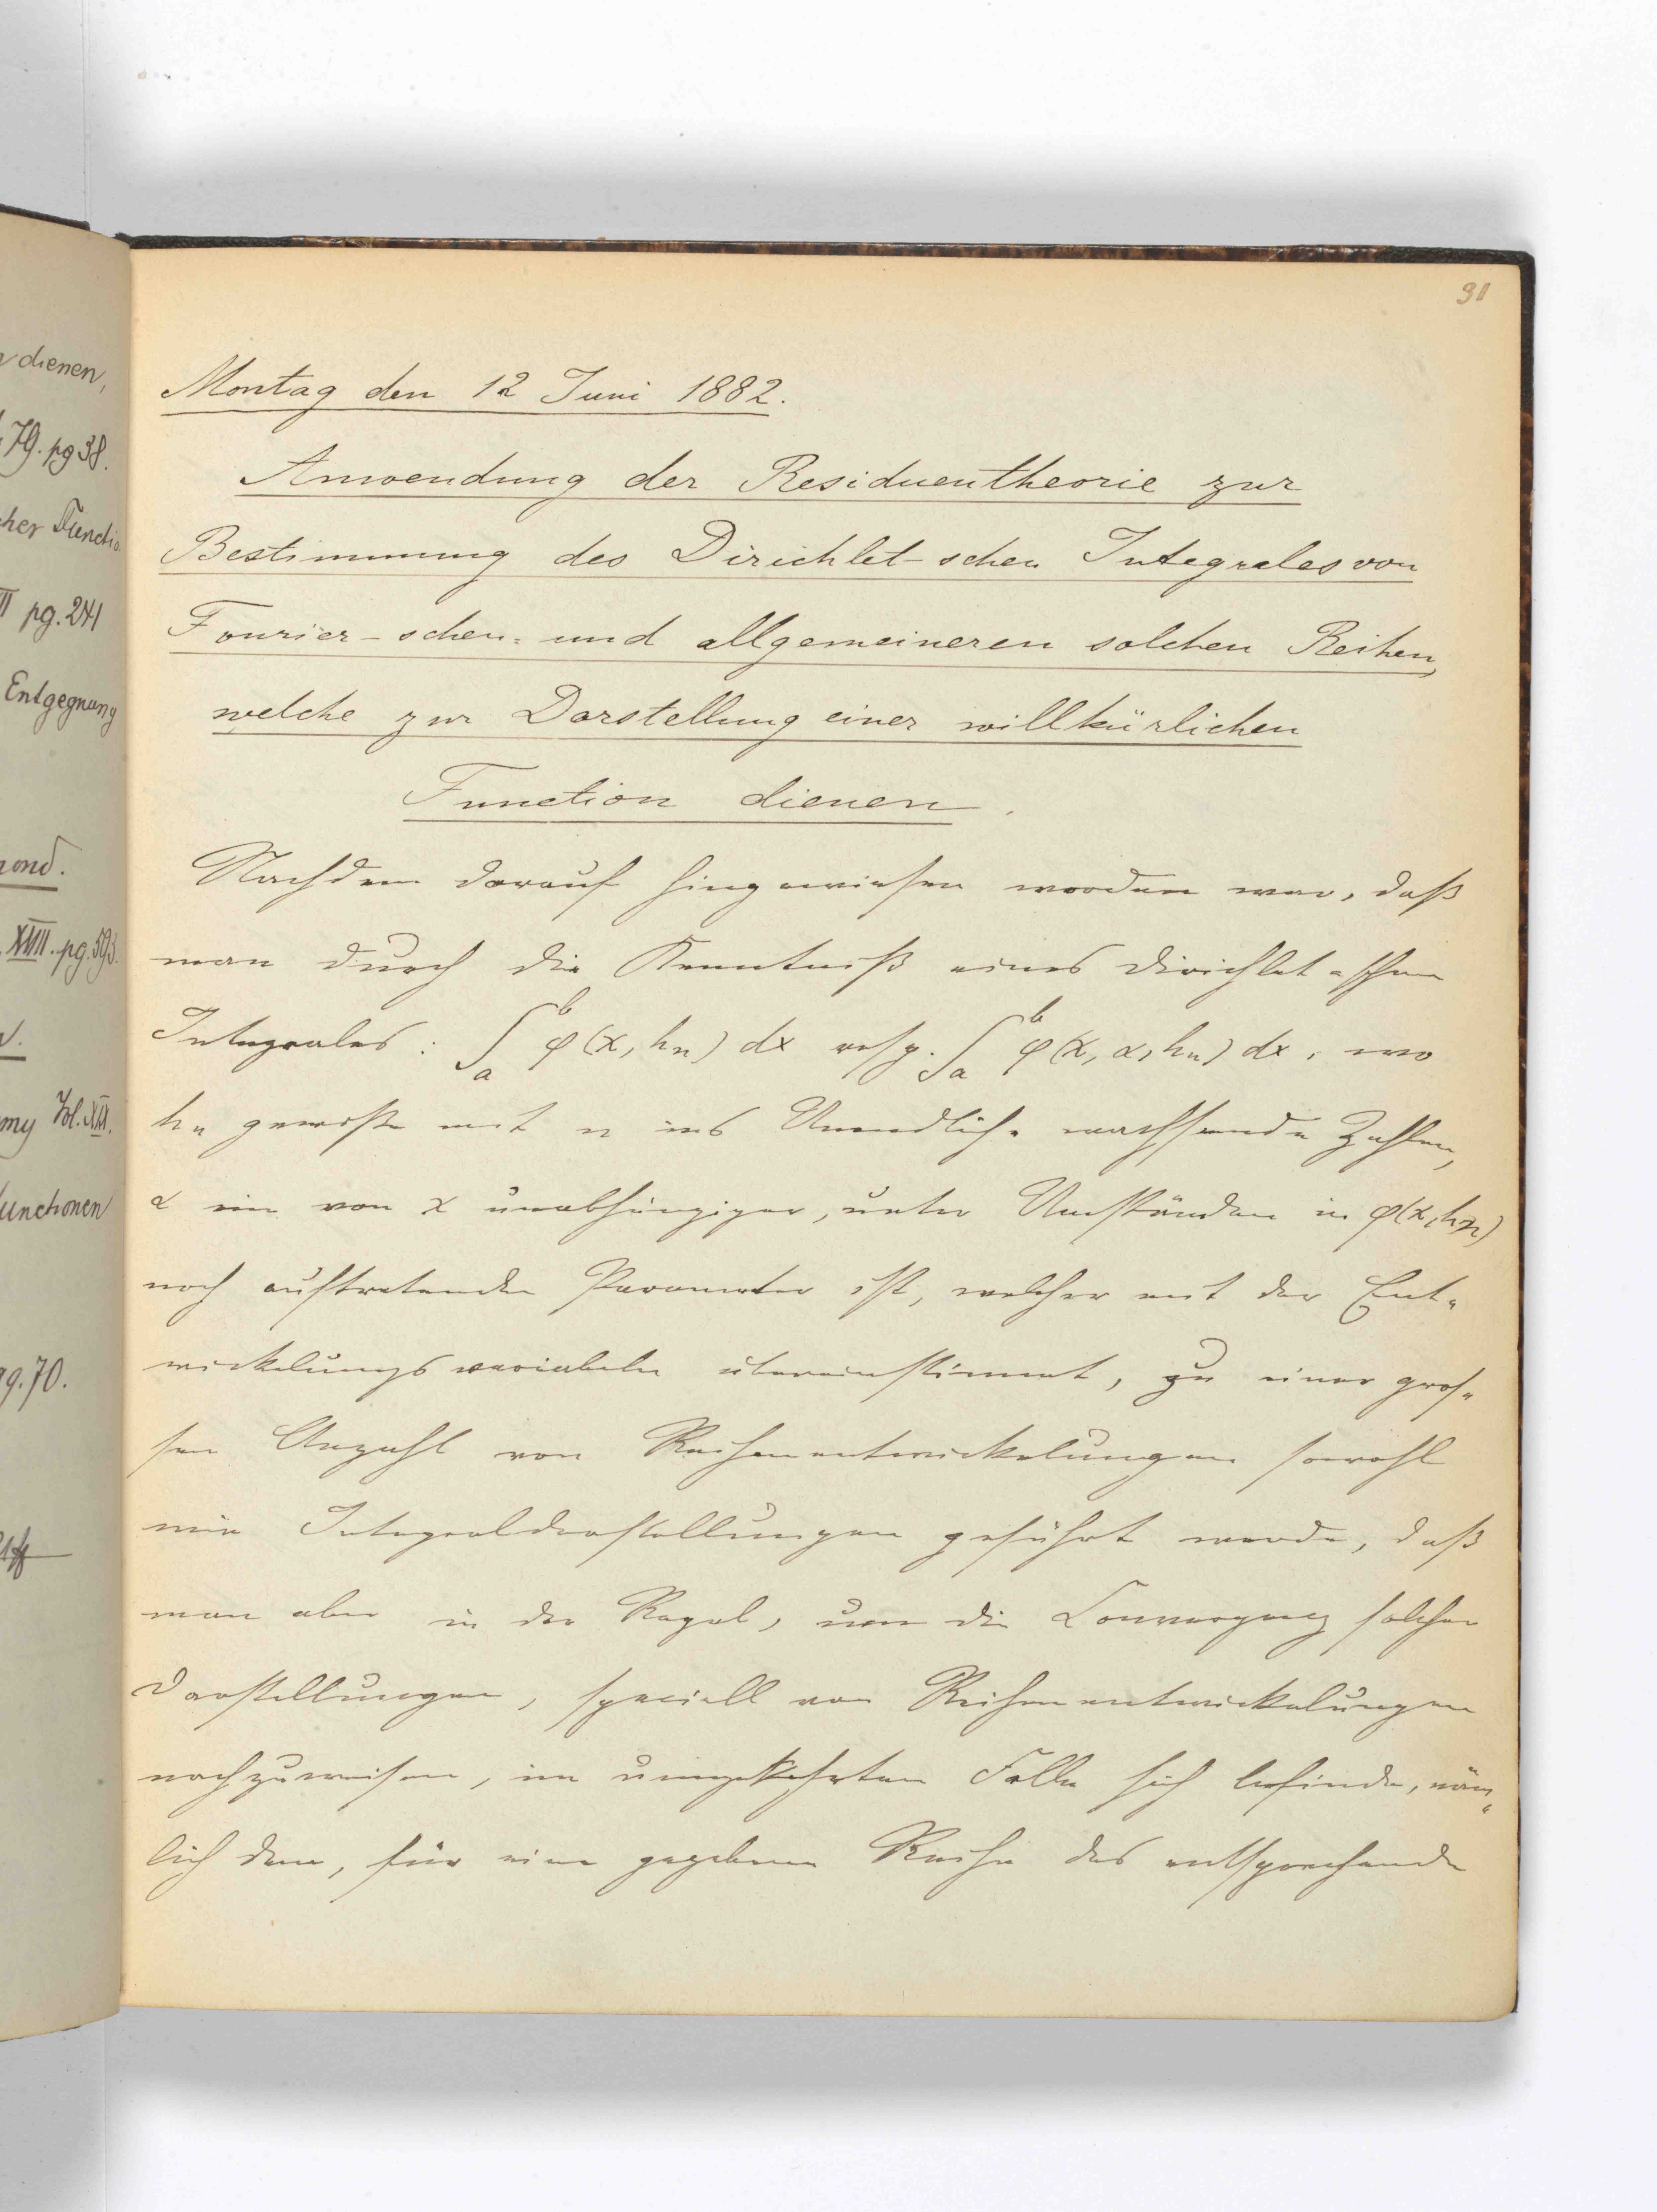 dienen,
79. pg 38.
cher Functio
II pg. 241
Entgegnung
mond.
XVIII. pg. 593.
my Vol. XIX.
functionen
pg. 70.
91
Montag den 12 Juni 1882.
Anwendung der Residuentheorie zur
Bestimmung des Dirichlet-schen Integrales von
Fourier-schen- und allgemeineren solchen Reihen,
welche zur Darstellung einer willkürlichen
Function dienen.
Nachdem darauf hingewiesen worden war, daß
man durch die Kenntniß eines Dirichlet-schen
Integrales: ∫ₐᵇ φ(x, hₙ) dx resp. ∫ₐᵇ φ(x, α, hₙ) dx, wo
hₙ gewisse mit n ins Unendliche wachsende Zahlen,
α ein von x unabhängiger, unter Umständen in φ(x, hₙ)
noch auftretender Parameter ist, welcher mit der Ent-
wickelungsvariabeln übereinstimmt, zu einer gros-
sen Anzahl von Reihenentwickelungen sowohl
wie Integraldarstellungen geführt werde, daß
man aber in der Regel, um die Convergenz solcher
Darstellungen, speciell von Reihenentwickelungen
nachzuweisen, im umgekehrten Falle sich befinde, näm-
lich dem, für eine gegebene Reihe das entsprechende